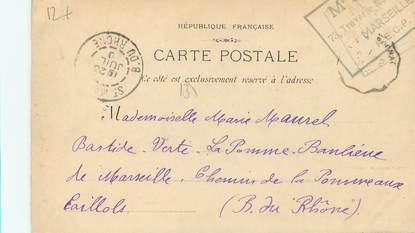 12 f
RÉPUBLIQUE FRANÇAISE
CARTE POSTALE
Ce côté est exclusivement réservé à l'adresse
B. DU RHÔNE
JUIL
MARSEILLE
13
Mademoiselle Marie Maurel
Bastide - Verte - La Pomme - Banlieue
de Marseille - Chemin de la Pomme aux
Caillols. (B. du Rhône).